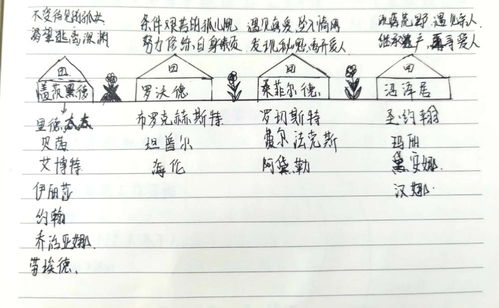 不受待见的孤女 条件艰苦的孤儿院 遇见真爱,坠入情网 流落荒野,遇见亲人
渴望逃离深渊 努力 自身素质 发现秘密,离开爱人 继承遗产,再寻爱人
盖茨黑德 罗沃德 桑菲尔德 沼泽居
里德太太 布罗克赫斯特 罗切斯特 圣·约翰
贝茜 坦普尔 费尔法克斯 玛丽
艾博特 海伦 阿黛勒 黛安娜
伊丽莎 汉娜
约翰
乔治亚娜
劳埃德